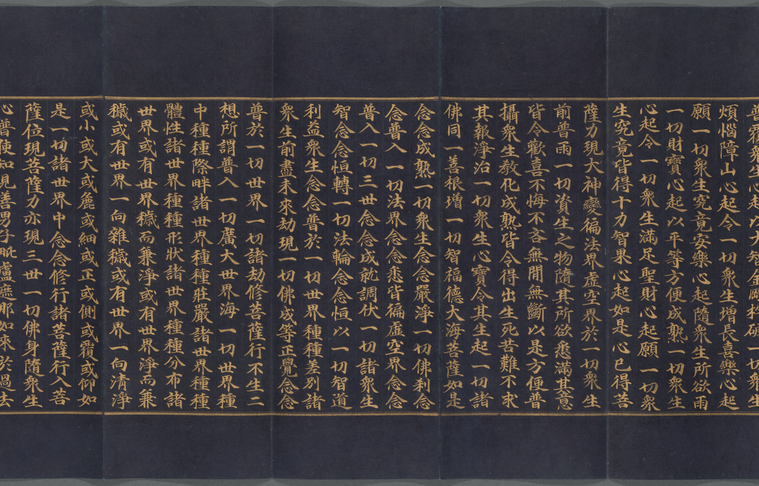 普覆衆生心起以大智金剛杵破一切衆生
煩惱障山心起令一切衆生增長喜樂心起
願一切衆生究竟安樂心起隨衆生所欲雨
一切財寶心起以平等方便成熟一切衆生
心起令一切衆生滿足聖財心起願一切衆
生究竟皆得十力智果心起如是心已得菩
薩力現大神變徧法界虛空界於一切衆生
前普雨一切資生之物隨其所欲悉滿其意
皆令歡喜不悔不吝無間無斷以是方便普
攝衆生教化成熟皆令得出生死苦難不求
其報淨治一切衆生心寶令其生起一切諸
佛同一善根增一切智福德大海菩薩如是
念念成熟一切衆生念念嚴淨一切佛刹念
念普入一切法界念念悉皆徧虛空界念念
普入一切三世念念成就調伏一切諸衆生
智念念恒轉一切法輪念念恒以一切智道
利益衆生念念普於一切世界種種差別諸
衆生前盡未來劫現一切佛成等正覺念念
普於一切世界一切諸劫修菩薩行不生二
想所謂普入一切廣大世界海一切世界種
中種種際畔諸世界種種莊嚴諸世界種種
體性諸世界種種形狀諸世界種種分布諸
世界或有世界穢而兼淨或有世界淨而兼
穢或有世界一向雜穢或有世界一向清淨
或小或大或麁或細或正或側或覆或仰如
是一切諸世界中念念修行諸菩薩行入菩
薩位現菩薩力亦現三世一切佛身隨衆生
心普使知見善男子毗盧遮那如來於過去